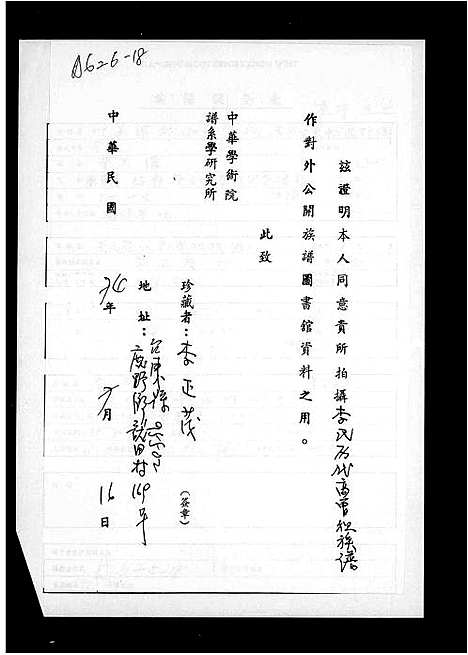 A626-18
茲證明本人同意貴所拍攝李氏歷代高曾祖族譜
作對外公開族譜圖書館資料之用。
此致
中華學術院
譜系學研究所
珍藏者：李正茂
(簽章)
地址：台東縣鹿野鄉龍田村169号
中華民國 年 月 16 日